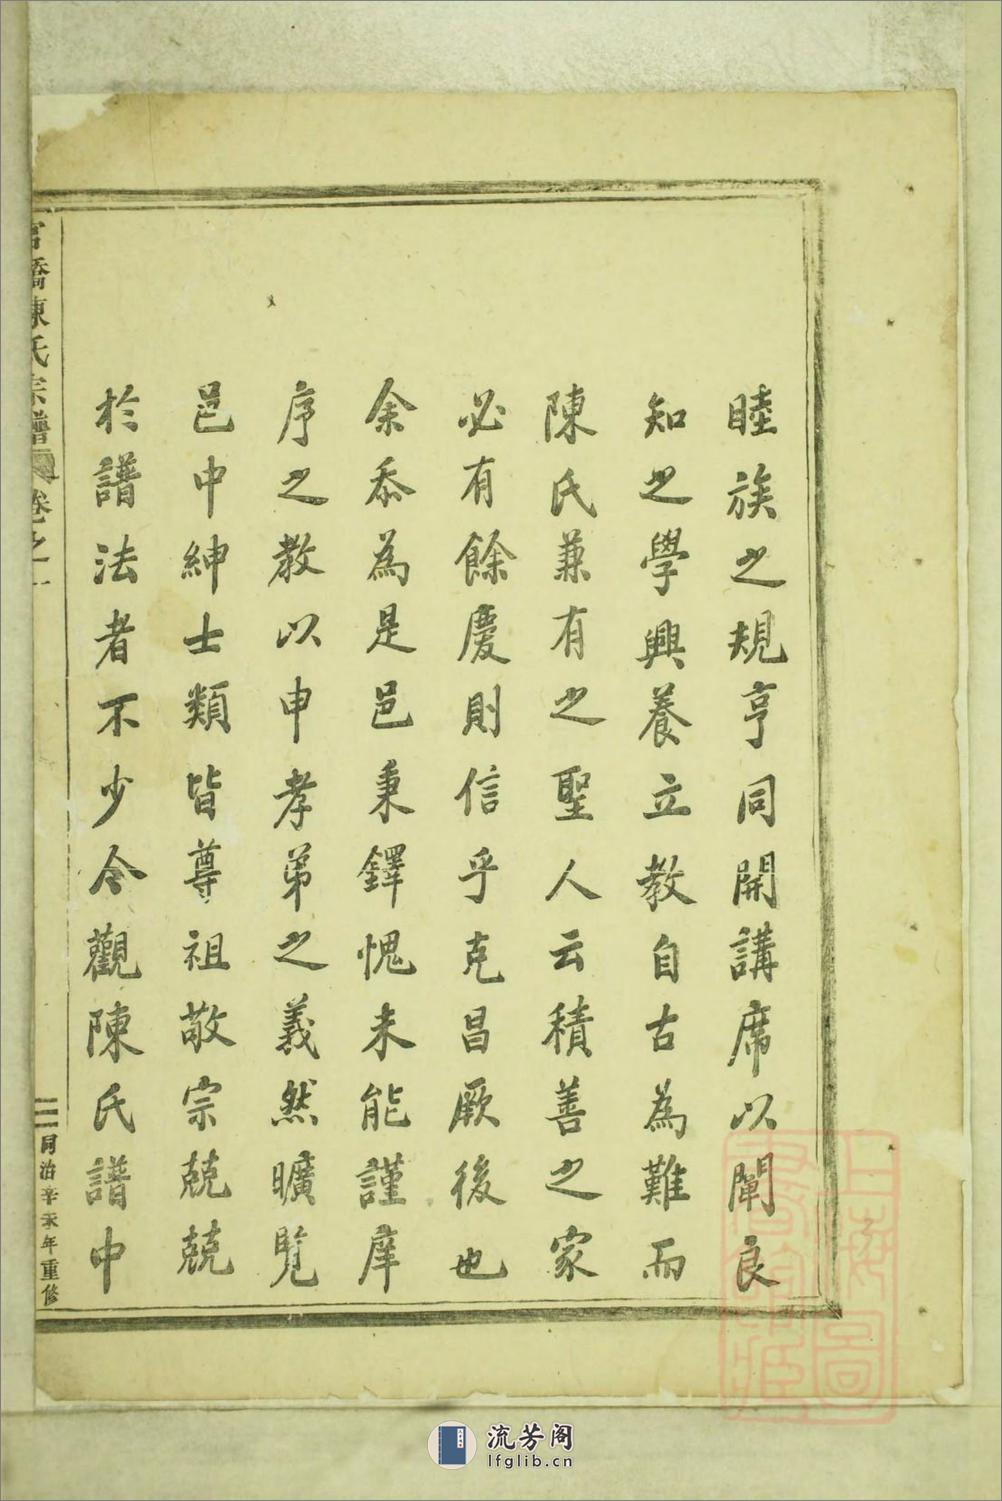 睦族之規亨同開講席以闡良
知之學興養立教自古為難而
陳氏兼有之聖人云積善之家
必有餘慶則信乎克昌厥後也
余忝為是邑秉鐸愧未能謹庠
序之教以申孝弟之義然曠覽
邑中紳士類皆尊祖敬宗兢兢
於譜法者不少今觀陳氏譜中
橋陳氏宗譜 卷之一
二 同治辛未年重修
上海圖書館藏
流芳阁
lfglib.cn